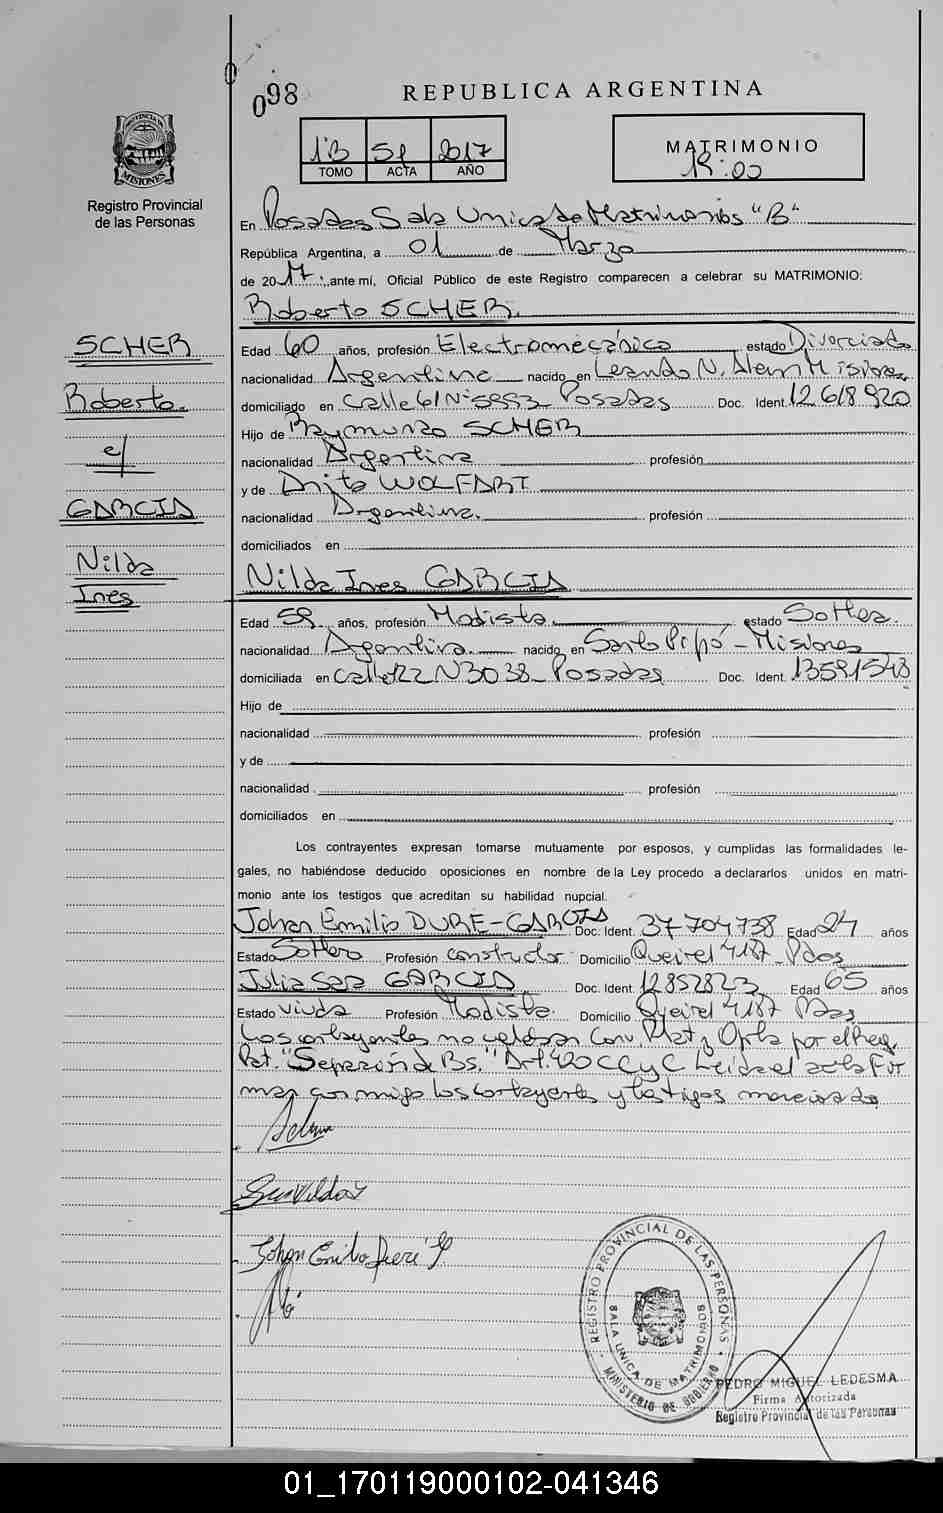 098
REPUBLICA ARGENTINA
PROVINCIA DE
MISIONES
Registro Provincial
de las Personas
1B 51 2017
TOMO ACTA AÑO
MATRIMONIO
En Posadas Sala Unica de Matrimonios "B"
República Argentina, a 01 de Marzo
de 2017, ante mí, Oficial Público de este Registro comparecen a celebrar su MATRIMONIO:
Roberto SCHER.
SCHER
Roberto
c/
GARCIA
Nilda
Ines
Edad 60 años, profesión Electromecánico estado Divorciado
nacionalidad Argentina nacido en Leandro N. Alem Misiones
domiciliado en Calle 61 Nº 5993 Posadas Doc. Ident. 12.618.920
Hijo de Raymundo SCHER
nacionalidad Argentina profesión
y de Anita WOLFART
nacionalidad Argentina. profesión
domiciliados en
Nilda Ines GARCIA
Edad 59 años, profesión Modista estado Soltera.
nacionalidad Argentina nacido en Santo Pipó - Misiones
domiciliada en Calle 122 N 3038 Posadas Doc. Ident. 13591548
Hijo de
nacionalidad profesión
y de
nacionalidad profesión
domiciliados en
Los contrayentes expresan tomarse mutuamente por esposos, y cumplidas las formalidades le-
gales, no habiéndose deducido oposiciones en nombre de la Ley procedo a declararlos unidos en matri-
monio ante los testigos que acreditan su habilidad nupcial.
Johan Emilio DURE-GARCIA Doc. Ident. 37704738 Edad 24 años
Estado Soltero Profesión constructor Domicilio Queirel 4187 Pdas
Julia Sara GARCIA Doc. Ident. 12852823 Edad 65 años
Estado viuda Profesión Modista. Domicilio Queirel 4187 Pdas
Los contrayentes no celebran Conv. Mat y Opta por el Reg.
Pat. "Separación de Bs." Art. 420 CCyC Leída el acta Fir
man conmigo los contrayentes y testigos mencionados
Johan Emilio Duré
REGISTRO PROVINCIAL DE LAS PERSONAS
SALA UNICA DE MATRIMONIOS
MINISTERIO DE GOBIERNO
PEDRO MIGUEL LEDESMA
Firma Autorizada
Registro Provincial de las Personas
01_170119000102-041346